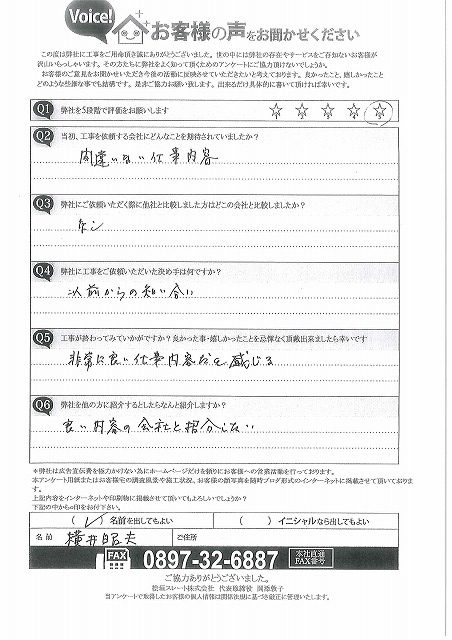 Voice!
お客様の声をお聞かせください
この度は弊社に工事をご用命頂き誠にありがとうございました。世の中には弊社の存在やサービスをご存知ないお客様が
沢山いらっしゃいます。その方たちに弊社をよく知って頂くためのアンケートにご協力頂けないでしょうか。
お客様のご意見をお聞かせいただき今後の活動に反映させていただきたいと考えております。良かったこと、嬉しかったこと
どのような些細な事でも結構です。是非ご協力お願い致します。出来るだけ具体的に書いて頂ければ幸いです。
Q1 弊社を5段階で評価をお願いします
Q2 当初、工事を依頼する会社にどんなことを期待されていましたか?
間違いない仕事内容
Q3 弊社にご依頼いただく際に他社と比較しました方はどこの会社と比較しましたか?
なし
Q4 弊社に工事をご依頼いただいた決め手は何ですか?
以前からの知り合い
Q5 工事が終わってみていかがですか?良かった事・嬉しかったことを忌憚なく頂戴出来ましたら幸いです
非常に良い仕事内容だと感じる
Q6 弊社を他の方に紹介するとしたらなんと紹介しますか?
良い内容の会社と紹介したい
*弊社は広告宣伝費を極力かけない為にホームページだけを頼りにお客様への営業活動を行っております。
本アンケート用紙またはお客様宅の調査風景や施工状況、お客様の顔写真を随時ブログ形式のインターネットに掲載させて頂いておりま
す。
上記内容をインターネットや印刷物に掲載させて頂いてもよろしいでしょうか?
下記の中から○印をお付下さい。
( ✓ )名前を出してもよい ( )イニシャルなら出してもよい
名前 横井 夫 ご住所
FAX 0897-32-6887 本社直通 FAX番号
ご協力ありがとうございました。
スレート株式会社 代表取締役
当アンケートで取得したお客様の個人情報は関係法規に基づき厳正に管理いたします。